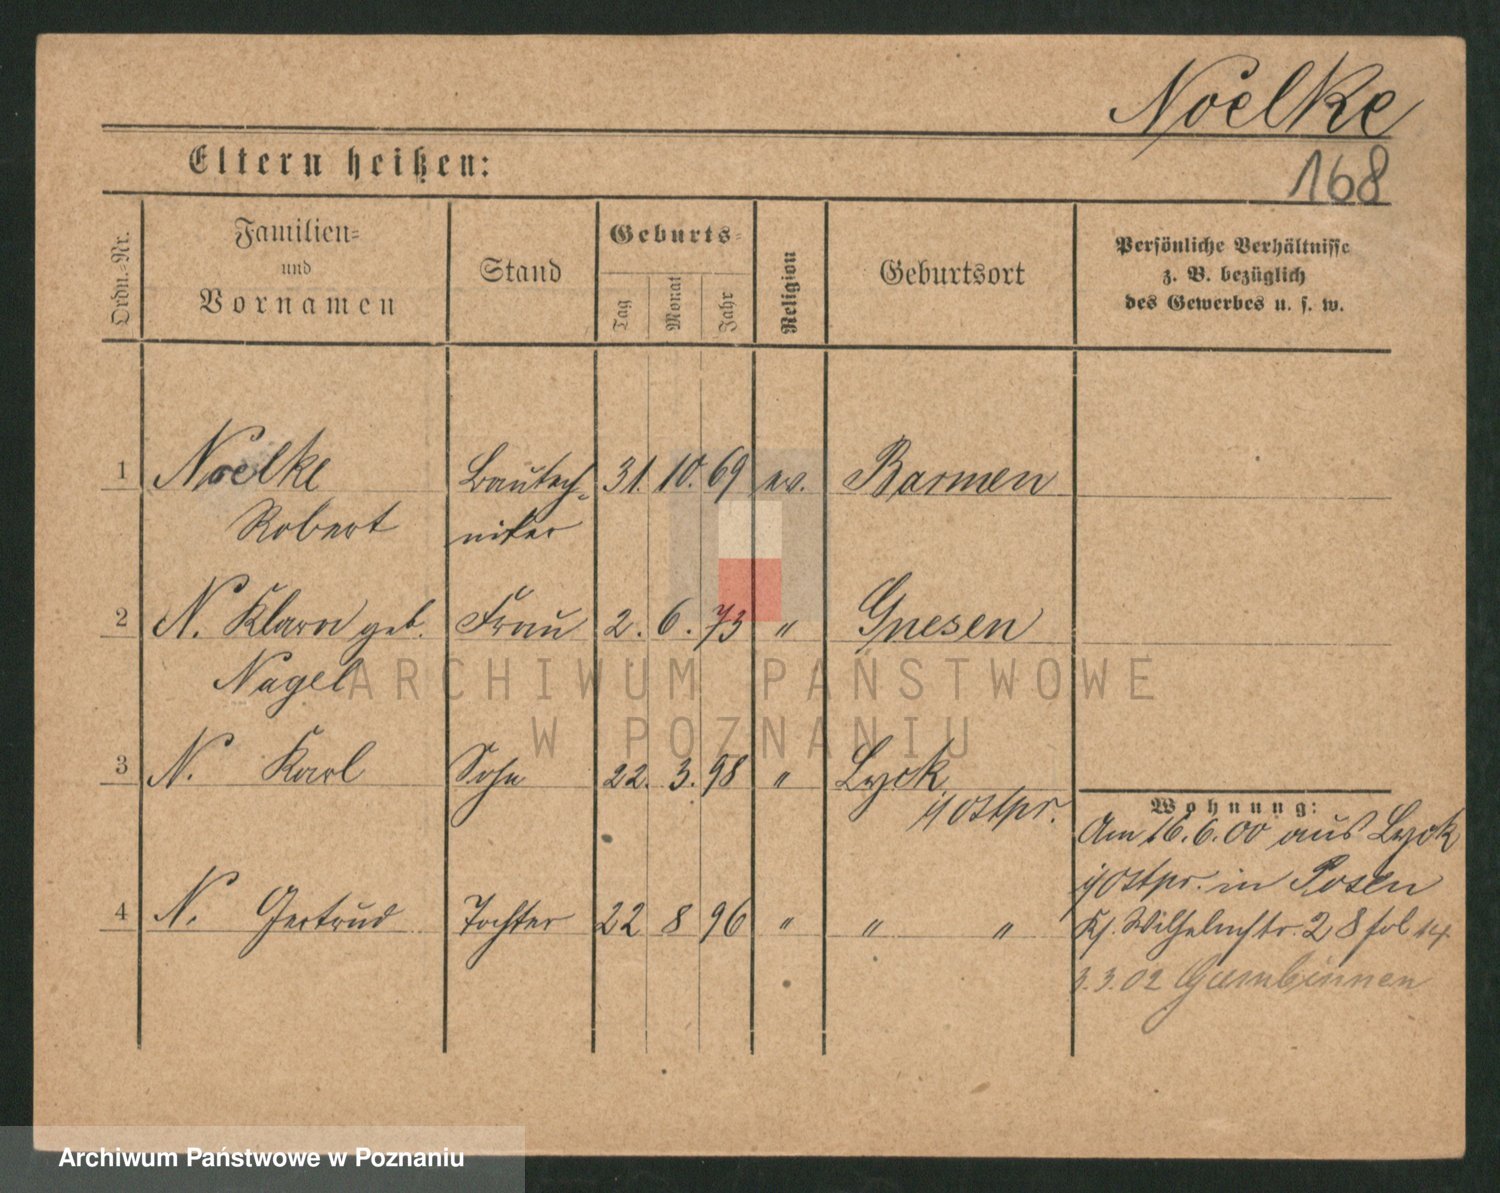 Noelke
168
Eltern heißen:
Ordn.-Nr.
Familien-
und
Vornamen
Stand
Geburts-
Tag
Monat
Jahr
Religion
Geburtsort
Persönliche Verhältnisse
z. B. bezüglich
des Gewerbes u. s. w.
1 Noelke Bautech- 31. 10. 69 ev. Barmen
Robert niker
2 N. Klara geb. Frau 2. 6. 73 " Gnesen
Nagel
3 N. Karl Sohn 22. 3. 98 " Lyck
i/Ostpr.
Wohnung:
Am 16.6.00 aus Lyck
i/Ostpr. in Posen
4 N. Gertrud Tochter 22 8 96 " " "
Wilhelmstr. 28 fol 14
3.3.02 Gumbinnen
ARCHIWUM PAŃSTWOWE
W POZNANIU
Archiwum Państwowe w Poznaniu